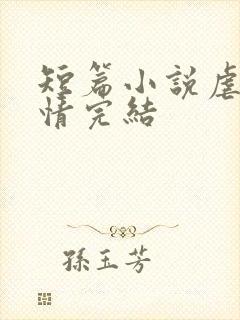 短篇小說虐
情完結
孫玉芳